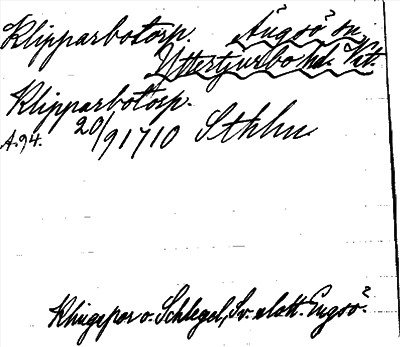 Klipparbotorp. Ängsö sn.
Yttertjurbo hd. Vst.
Klipparbotorp.
A.94. 20/9 1710 Sthlm
Klingspor o. Schlegel, Sv. slott. Engsö.